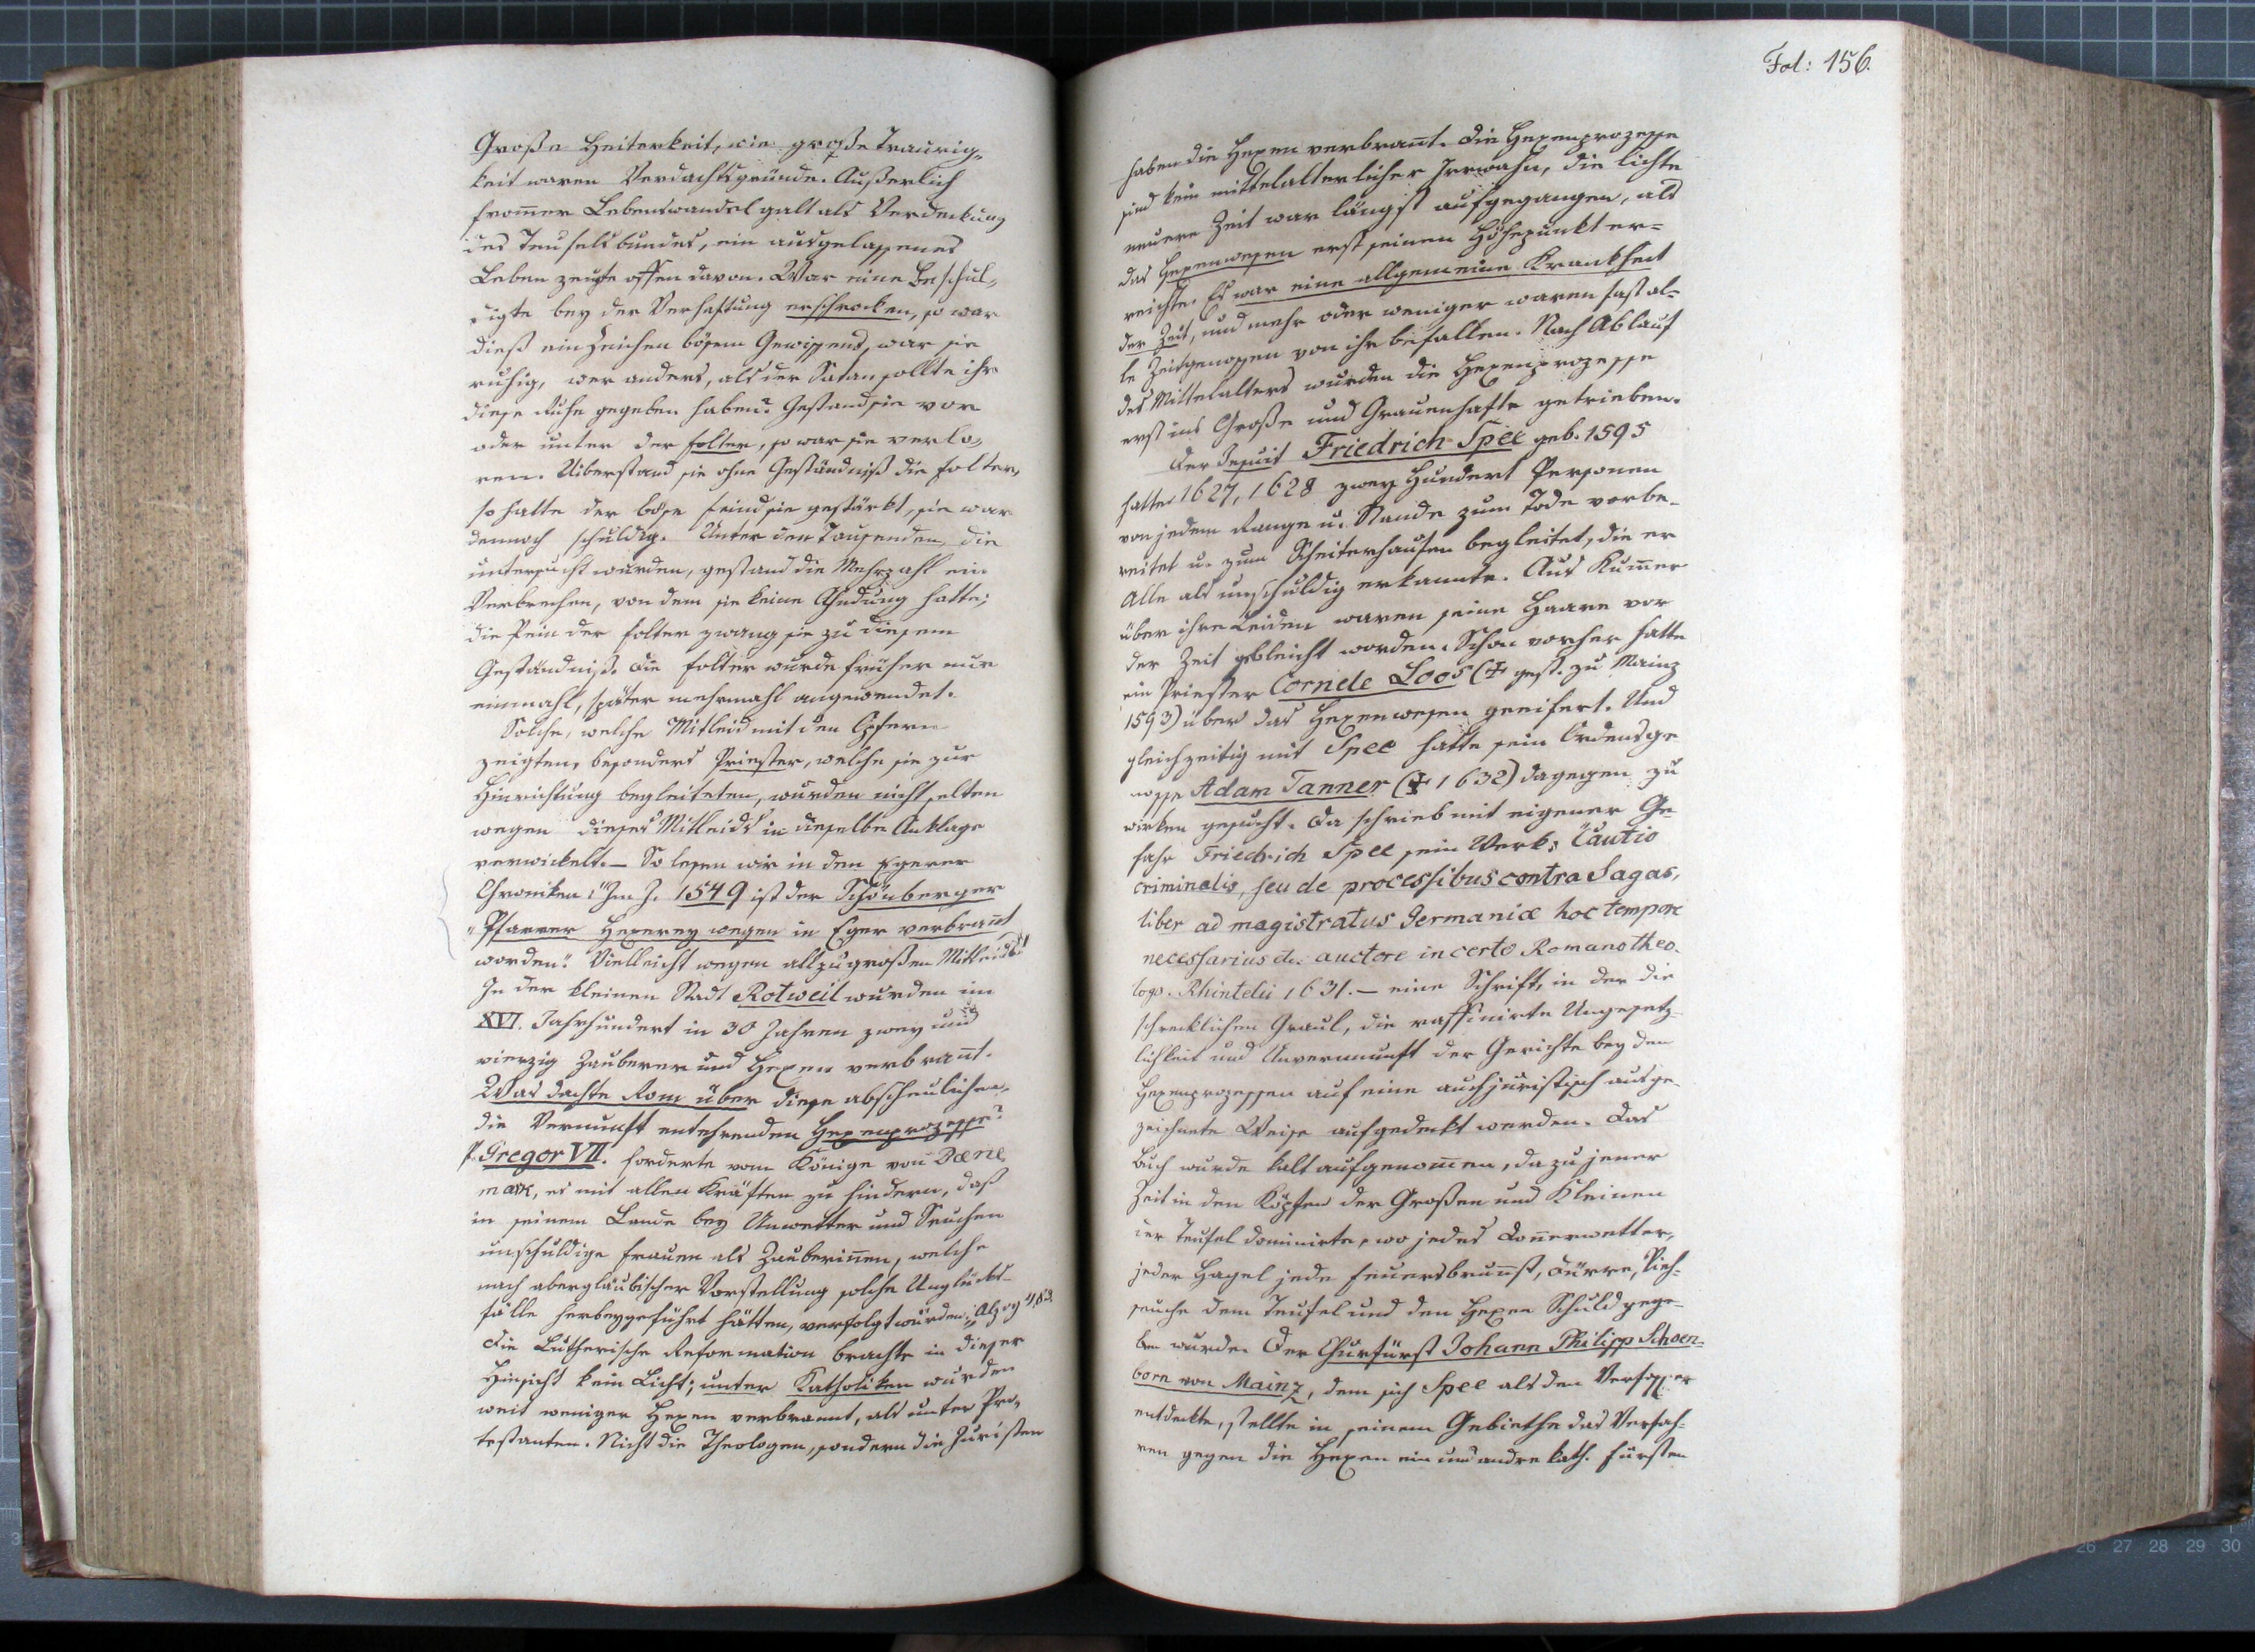 Große Heiterkeit, wie große Traurig„
keit waren Verdachtsgründe. Außerlich
from̄er Lebenswandel galt als Verdeckung
des Teufelsbundes, ein ausgelassenes
Leben zeugte offen davon. War eine Beschul„
digte bey der Verhaftung erschrocken, so war
dieß ein Zeichen bösem Gewissens, war sie
ruhig, wer anders, als der Satan sollte ihr
diese Ruhe gegeben haben? Gestand sie vor
oder unter der Folter, so war sie verlo„
ren. Uiberstand sie ohne Geständniß die Folter,
so hatte der böse Feind sie gestärkt, sie war
dennoch schuldig. Unter den Tausenden, die
untersucht wurden, gestand die Mehrzahl ein
Verbrechen, von dem sie keine Ahndung hatte;
die Pein der Folter zwang sie zu diesem
Geständniß. Die Folter wurde früher nur
einmahl, später mehrmahl angewendet.
Solche, welche Mitleid mit den Opfern
zeigten, besonders Priester, welche sie zur
Hinrichtung begleiteten, wurden nicht selten
wegen dieses Mitleids in dieselbe Anklage
verwickelt. — So lesen wir in den Egerer
Chroniken: "Im J. 1549 ist der Schönberger
"Pfarrer Hexerey wegen in Eger verbran̄t
worden." Vielleicht wegen allzugroßen Mitleids!
In der kleinen Stadt Rotweil wurden im
XVI. Jahrhundert in 30 Jahren zwey und
vierzig Zauberer und Hexen verbran̄t.
Was dachte Rom über diese abscheulichen,
die Vernunft entehrenden Hexenprozesse?
P. Gregor VII. forderte vom Könige von Dæne
mark, es mit allen Kräften zu hindern, daß
in seinem Lande bey Unwetter und Seuchen
unschuldige Frauen als Zauberin̄en, welche
nach abergläubischer Vorstellung solche Unglücks-
fälle herbeygeführt hätten, verfolgt würden. Alzog 483.
Die Lutherische Reformation brachte in dieser
Hinsicht kein Licht; unter Katholiken wurden
weit weniger Hexen verbrannt, als unter Pro„
testanten. Nicht die Theologen, sondern die Juristen
Fol: 156.
haben die Hexen verbran̄t. Die Hexenprozesse
sind kein mittelalterlicher Irrwahn, die lichte
neuere Zeit war längst aufgegangen, als
das Hexenwesen erst seinen Höhepunkt er=
reichte. Es war eine allgemeine Krankheit
der Zeit, und mehr oder weniger waren fast al=
le Zeitgenossen von ihr befallen. Nach Ablauf
des Mittelalters wurden die Hexenprozesse
erst ins Große und Grauenhafte getrieben.
Der Jesuit Friedrich Spee geb. 1595
hatte 1627, 1628 zwey Hundert Personen
von jedem Range u. Stande zum Tode vorbe-
reitet u. zum Scheiterhaufen begleitet, die er
Alle als unschuldig erkannte. Aus Kum̄er
über ihre Leiden waren seine Haare vor
der Zeit gebleicht worden. Schon vorher hatte
ein Priester Cornele Loos (☩ gest. zu Mainz
1593) über das Hexenwesen geeifert. Und
gleichzeitig mit Spee hatte sein Ordensge
nosse Adam Tanner (☩ 1632) dagegen zu
wirken gesucht. Da schrieb mit eigener Ge-
fahr Friedrich Spee sein Werk: "Cautio
criminalis, seu de processibus contra Sagas,
liber ad magistratus Germaniæ hoc tempore
necessarius etc. auctore incerto Romano theo-
logo. Rhintelii 1631. — eine Schrift, in der die
schrecklichen Graul, die raffinirte Ungesetz-
lichkeit und Unvernunft der Gerichte bey den
Hexenprozessen auf eine auch juristisch ausge-
zeichnete Weise aufgedeckt werden. Das
Buch wurde kalt aufgenom̄en, da zu jener
Zeit in den Köpfen der Großen und Kleinen
der Teufel dominirte, wo jedes Don̄erwetter,
jeder Hagel jede Feuersbrunst, Dürre, Vieh=
seuche dem Teufel und den Hexen Schuld gege-
ben wurde. Der Churfürst Johann Philipp Schoen-
born von Mainz, dem sich Spee als den Verfasser
entdeckte, stellte in seinem Gebiethe das Verfah-
ren gegen die Hexen ein und andre kath. Fürsten